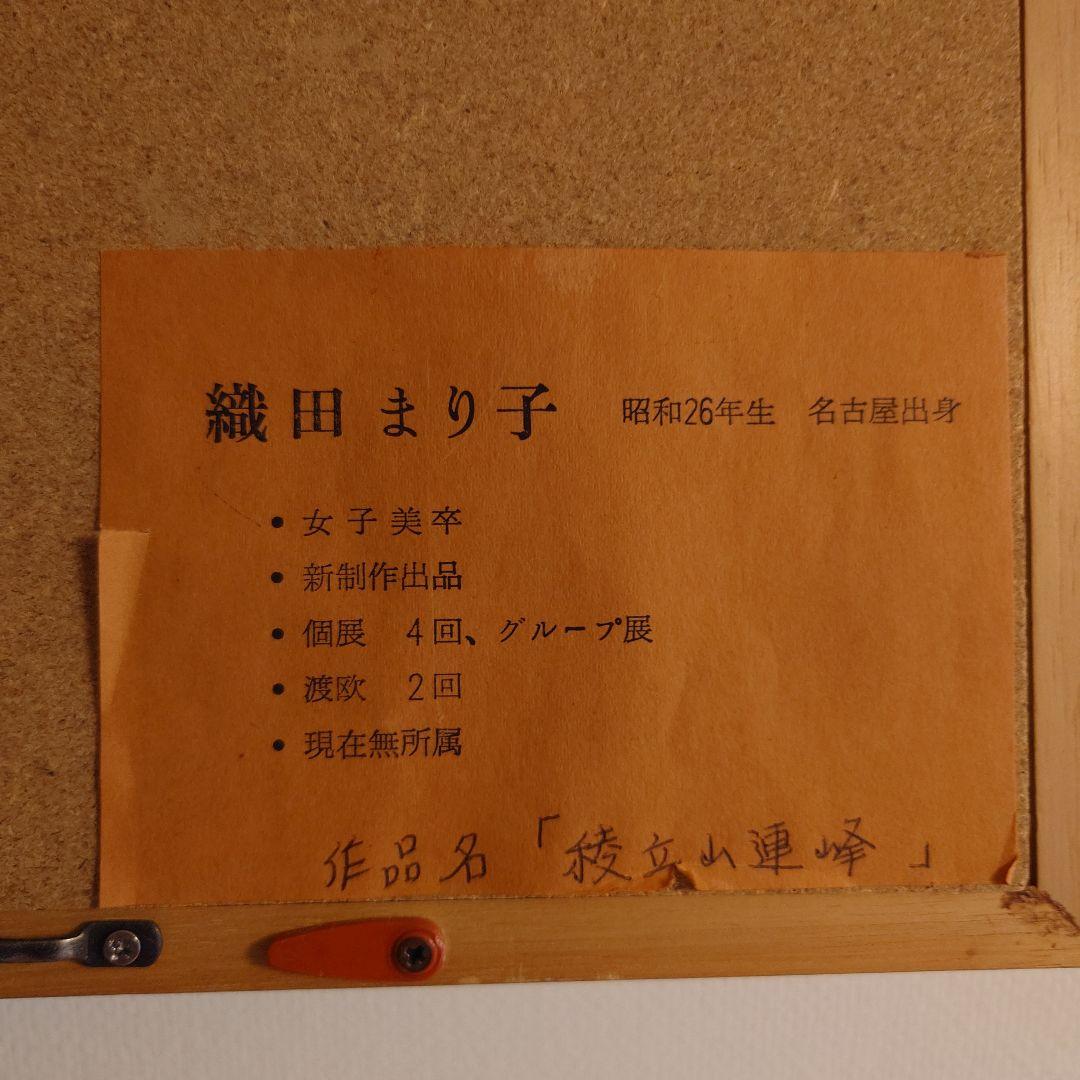 織田まり子 昭和26年生 名古屋出身
• 女子美卒
• 新制作出品
• 個展 4回、グループ展
• 渡欧 2回
• 現在無所属
作品名「稜立山連峰」